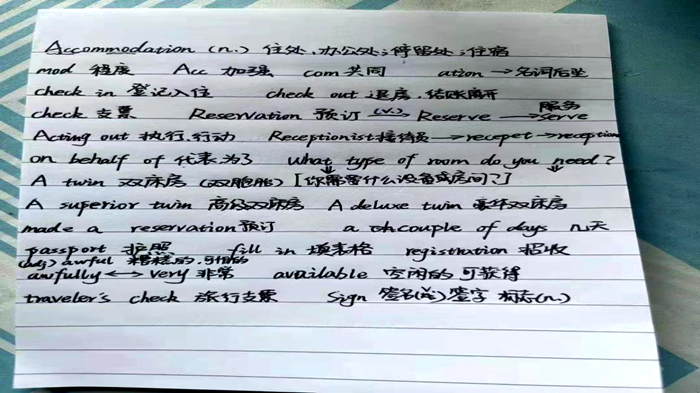 Accommodation (n.) 住处,办公处;停留处;住宿
mod 程度 Acc 加强 com 共同 ation → 名词后坠
check in 登记入住 check out 退房,结账离开
服务
check 支票 Reservation 预订 (v.) → Reserve → serve
Acting out 执行,行动 Receptionist 接待员 → recepet → reception
on behalf of 代表,为了 what type of room do you need?
A twin 双床房 (双胞胎) [你需要什么设备或房间了]
A superior twin 高级双床房 A deluxe twin 豪华双床房
made a reservation 预订 a couple of days 几天
passport 护照 fill in 填表格 registration 招收
(adj) awful 糟糕的,可怕的
awfully ↔ very 非常 available 空闲的 可获得
traveler's check 旅行支票 Sign 签名(v.) 签字 标志(n.)